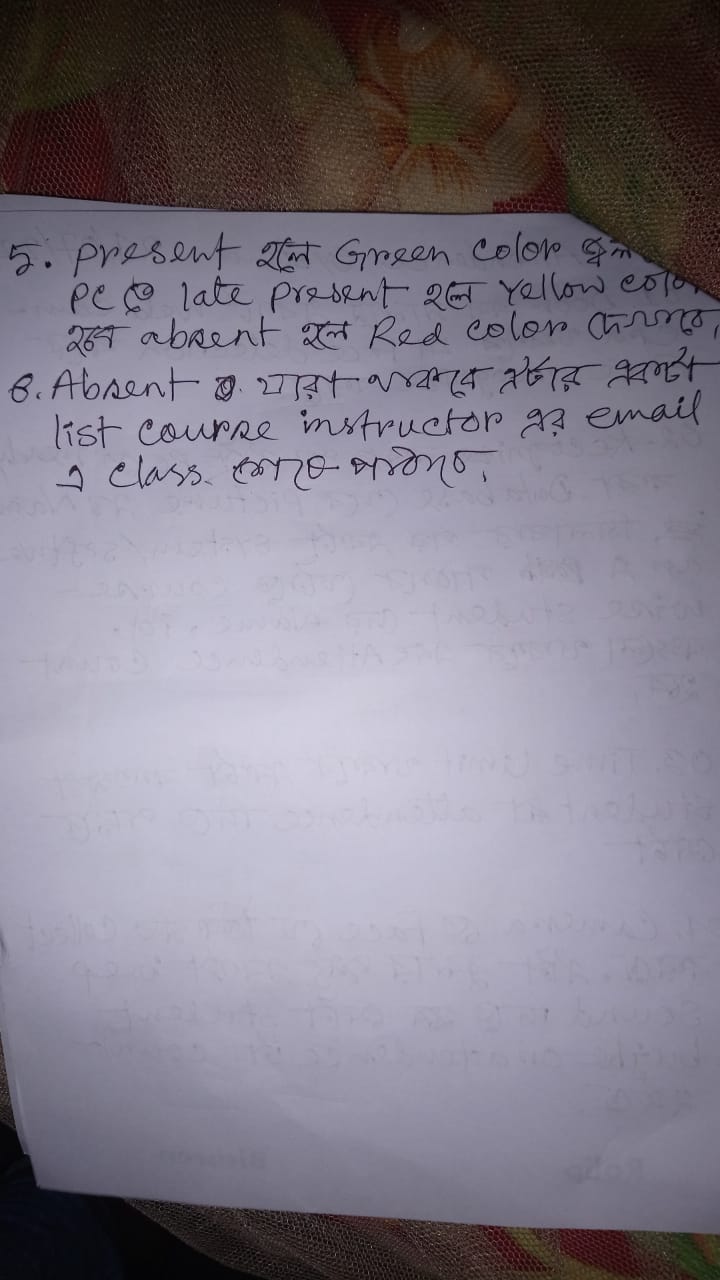 5. Present হলে Green color
PC তে late present হলে Yellow color
হবে absent হলে Red color দেখাবে,
6. Absent যারা থাকবে এটার একটা
list course instructor এর email
এ class শেষে পাঠাবে,